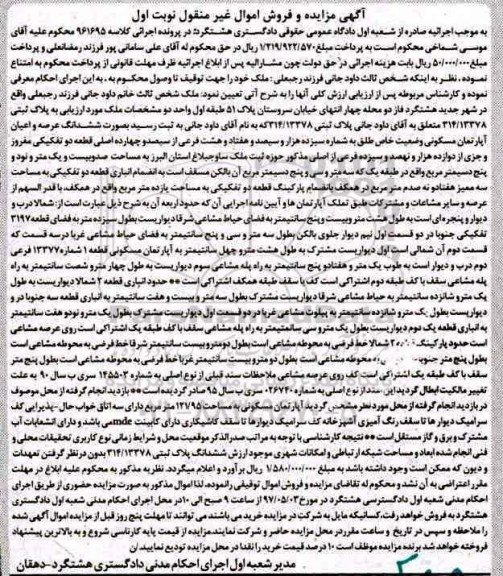 آگهی مزایده و فروش اموال غیر منقول نوبت اول
به موجب اجرائیه صادره از شعبه اول دادگاه عمومی حقوقی دادگستری هشتگرد در پرونده اجرائی کلاسه 961695 محکوم علیه آقای
موسی شماخی محکوم است به پرداخت مبلغ 1/219/922/570 ریال در حق محکوم له آقای علی سامانی پور فرزند رمضانعلی و پرداخت
مبلغ 50/000/000 ریال بابت هزینه اجرائی در حق دولت چون مشارالیه پس از ابلاغ اجرائیه ظرف مهلت قانونی از پرداخت محکوم به امتناع
نموده، نظر به اینکه شخص ثالث داود جانی فرزند رجبعلی: ملک خود را جهت توقیف تا وصول محکوم به، به این اجرای احکام معرفی
نموده و کارشناس مربوطه پس از ارزیابی ارزش کلی آنها را به شرح آتی تعیین نمود: ملک شخص ثالث خانم داود جانی فرزند رجبعلی واقع
در شهر جدید هشتگرد فاز دو محله چهار انتهای خیابان سروستان پلاک 51 طبقه اول واحد دو مشخصات ملک مورد ارزیابی به پلاک ثبتی
314/13378 متعلق به آقای داود جانی پلاک ثبتی 314/13378 که به نام آقای داود جانی به ثبت رسید بصورت ششدانگ عرصه و اعیان
آپارتمان مسکونی وضعیت خاص طلق به شماره سیزده هزار و سیصد و هفتاد و هشت فرعی از سیصد و چهارده اصلی قطعه دو تفکیکی مفروز
و جزی از دوازده هزار و نهصد و فرعی از اصلی مذکور حوزه ثبت ملک ساوجبلاغ استان البرز به مساحت صد و بیست و یک متر و نود و
پنج دسیمتر مربع واقع در طبقه یک که سه متر و سی و پنج دسیمتر مربع آن بالکن مسقف است به انضمام انباری قطعه دو تفکیکی به مساحت
سه ممیز هفتاد و نه صدم متر مربع در همکف بانضمام پارکینگ قطعه دو تفکیکی به مساحت یازده متر مربع واقع در همکف، با قدر السهم از
عرصه و سایر مشاعات و مشترکات طبق تملک آپارتمان ها و آیین نامه اجرایی آن که حدود اربعه آن به شرح ذیل عبارت است از: شمالا درب و
دیوار و پنجره ای است به طول هشت متر و بیست و پنج سانتیمتر به فضای حیاط مشاعی شرقا دیواریست بطول سیزده متر به فضای قطعه 3197
تفکیکی جنوبا در دو قسمت اول نیم دیوار جلوی بالکن بطول سه متر و سی و پنج سانتیمتر به فضای حیاط مشاعی غربا در سه قسمت که
قسمت دوم آن شمالی است اول دیواریست مشترک به طول هشت متر و چهل سانتیمتر به آپارتمان مسکونی قطعه 1 شماره 13377 فرعی
دوم درب و دیوار است به طوب یک متر و هفتاد و پنج سانتیمتر به راه پله مشاعی سوم دیواریست به طول چهار متر و شصت سانتیمتر به راه
پله مشاعی سقف با کف طبقه دوم اشتراکی است کف با سقف طبقه همکف اشتراکی است ** حدود انباری قطعه 2 شمالا دیواریست به طول
یک متر و شانزده سانتیمتر به حیاط مشاعی شرقا دیواریست مشترک بطول سه متر و بیست و هفت سانتیمتر به انباری قطعه سه جنوبا در و
دیواریست بطول یک متر و شانزده سانتیمتر به پیلوت مشاعی غربا در دو قسمت اول دیواریست مشترک بطول یک متر و نود و هفت سانتیمتر
به انباری قطعه یک دوم دیواریست بطول یک متر و سی سانتیمتر به راه پله مشاعی سقف با کف طبقه یک اشتراکی است روی عرصه مشاعی
است حدود پارکینگ شمالا خط فرضی به محوطه مشاعی است بطول دو متر و بیست سانتیمتر شرقا خط فرضی به محوطه مشاعی است
بطول پنج متر جنوبا به محوطه مشاعی است بطول دو متر و بیست سانتیمتر غربا خط فرضی به محوطه مشاعی است بطول پنج متر
سقف با کف طبقه یک اشتراکی است کف روی عرصه مشاعی ملاحظات سند قبلی از نوع اصلی به شماره 145503 سری ب سال 90 به علت
تغییر مالکیت ابطال گردید این سند از نوع اصلی به شماره 026740 سری ب سال 95 صادر گردیده است ** بازدید انجام گرفته از محل موصوف
در بازدید انجام گرفته از محل مورد نظر مشخص گردید آپارتمان مسکونی به مساحت 121/95 متر مربع دارای سه اتاق خواب حال - پذیرایی کف
سرامیک دیوار ها تا سقف رنگ آمیزی آشپزخانه کف سرامیک دیوارها تا سقف کاشیکاری دارای کابینت mde می باشد و دارای انشعابات آب
مشترک و برق و گاز مستقل است ** نتیجه کارشناسی با توجه به مراتب صدرالذکر موقعیت محل و شرایط زمانی نوع کاربری تحقیقات محلی و
فنی انجام شده ابعاد و مساحت شبکه ارتباطی و امکانات شهری موجود ارزش ششدانگ پلاک ثبتی 314/13378 بدون در نظر گرفتن تعهدات
و دیون که ممکن است وجود داشته باشد به مبلغ 1/580/000/000 ریال بر آورد و اعلام میگردد. نظریه مذکور به محکوم علیه ابلاغ در مهلت
مقرر اعتراضی به آن نشد و محکوم له تقاضای مزایده و فروش اموال توقیفی را نموده، لذا اموال مذکور به صورت مزایده حضوری از طریق اجرای
احکام مدنی شعبه اول دادگستری هشتگرد در مورخ 97/05/03 از ساعت 9 صبح الی 10 در محل اجرای احکام مدنی شعبه اول دادگستری
هشتگرد به فروش خواهد رفت. کسانیکه مایل به شرکت در مزایده خرید می باشند می توانند تا مهلت پنج روز قبل از مزایده اموال آگهی شده
را ملاحظه و سپس در تاریخ و ساعت مقرر در محل مزایده حاضر و شرکت نمایند. مزایده از قیمت پایه کارشناسی شروع و به بالاترین پیشنهاد
فروخته خواهد شد برنده مزایده موظف است 10 درصد قیمت خرید را نقدا در محل مزایده تودیع نماید/ن
مدیر شعبه اول اجرای احکام مدنی دادگستری هشتگرد-دهقان